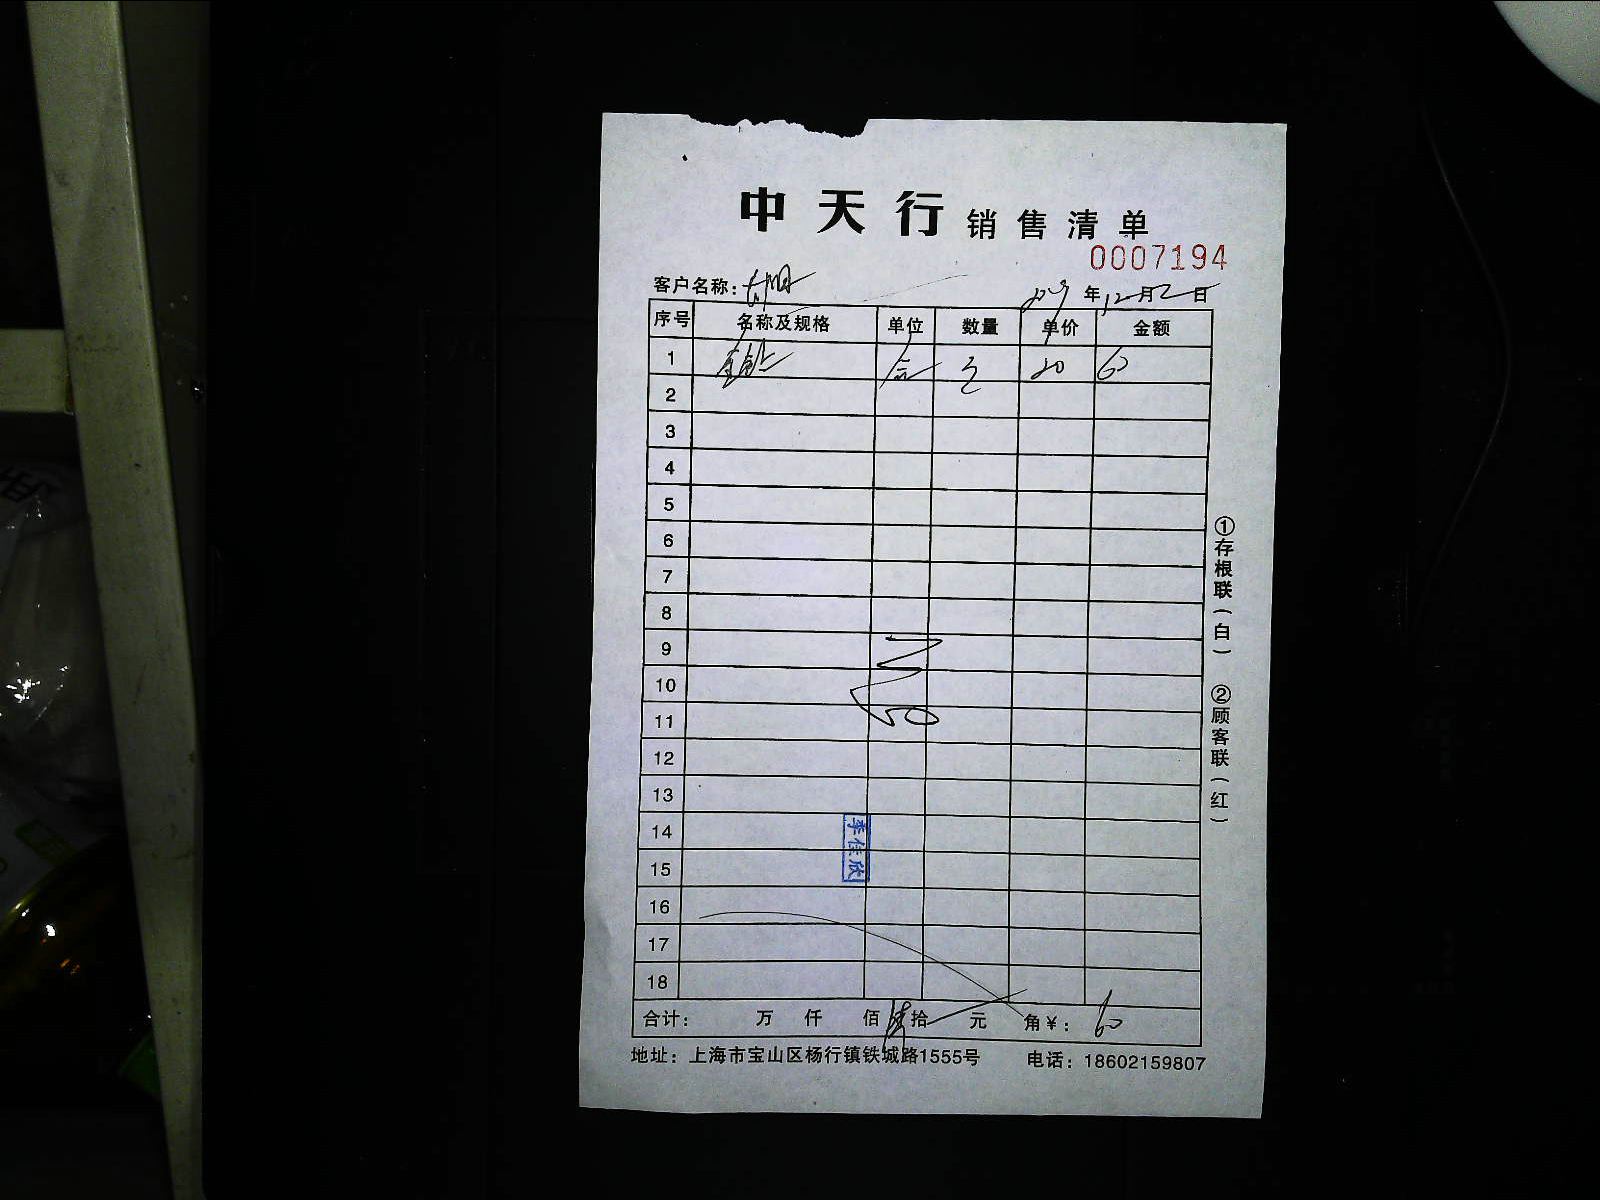 中天行 销售清单
0007194
客户名称:
2019年12月2日
序号 名称及规格 单位 数量 单价 金额
1 3 20 60
2
3
4
5
6
7
8
9
10
11
12
13
14
15
16
17
18
李佳欣
合计: 万 仟 佰 陆拾 元 角¥: 60
地址:上海市宝山区杨行镇铁城路1555号 电话:18602159807
①存根联(白) ②顾客联(红)